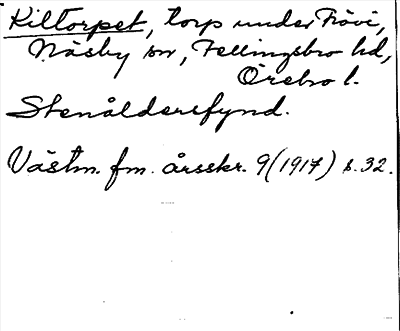 Kiltorpet, torp under Frövi,
Näsby sn, Fellingsbro hd,
Örebro l.
Stenåldersfynd.
Västm. fm. årsskr. 9 (1917) s. 32.